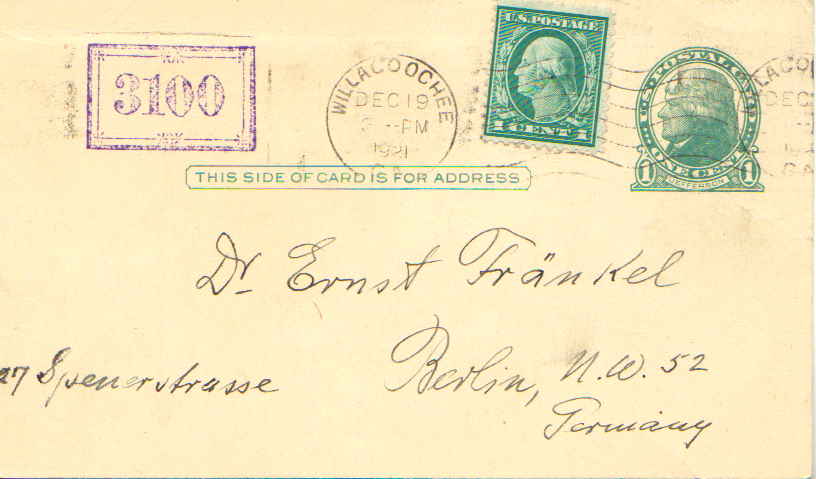 3100
WILLACOOCHEE
DEC 19
PM
1921
GA
U.S. POSTAGE
1 CENT 1
U.S. POSTAL CARD
1 ONE CENT 1
JEFFERSON
LACOO
DEC
GA
THIS SIDE OF CARD IS FOR ADDRESS
Dr. Ernst Fränkel
27 Spenerstrasse
Berlin, N.W. 52
Germany